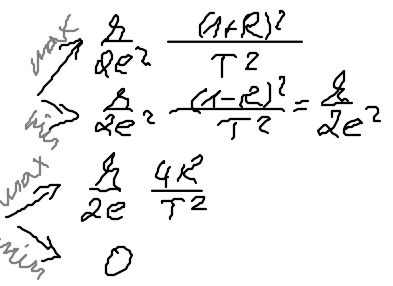 max h/2e² (1+R)²/T²
min h/2e² (1-R)²/T² = h/2e²
max h/2e 4R²/T²
min 0